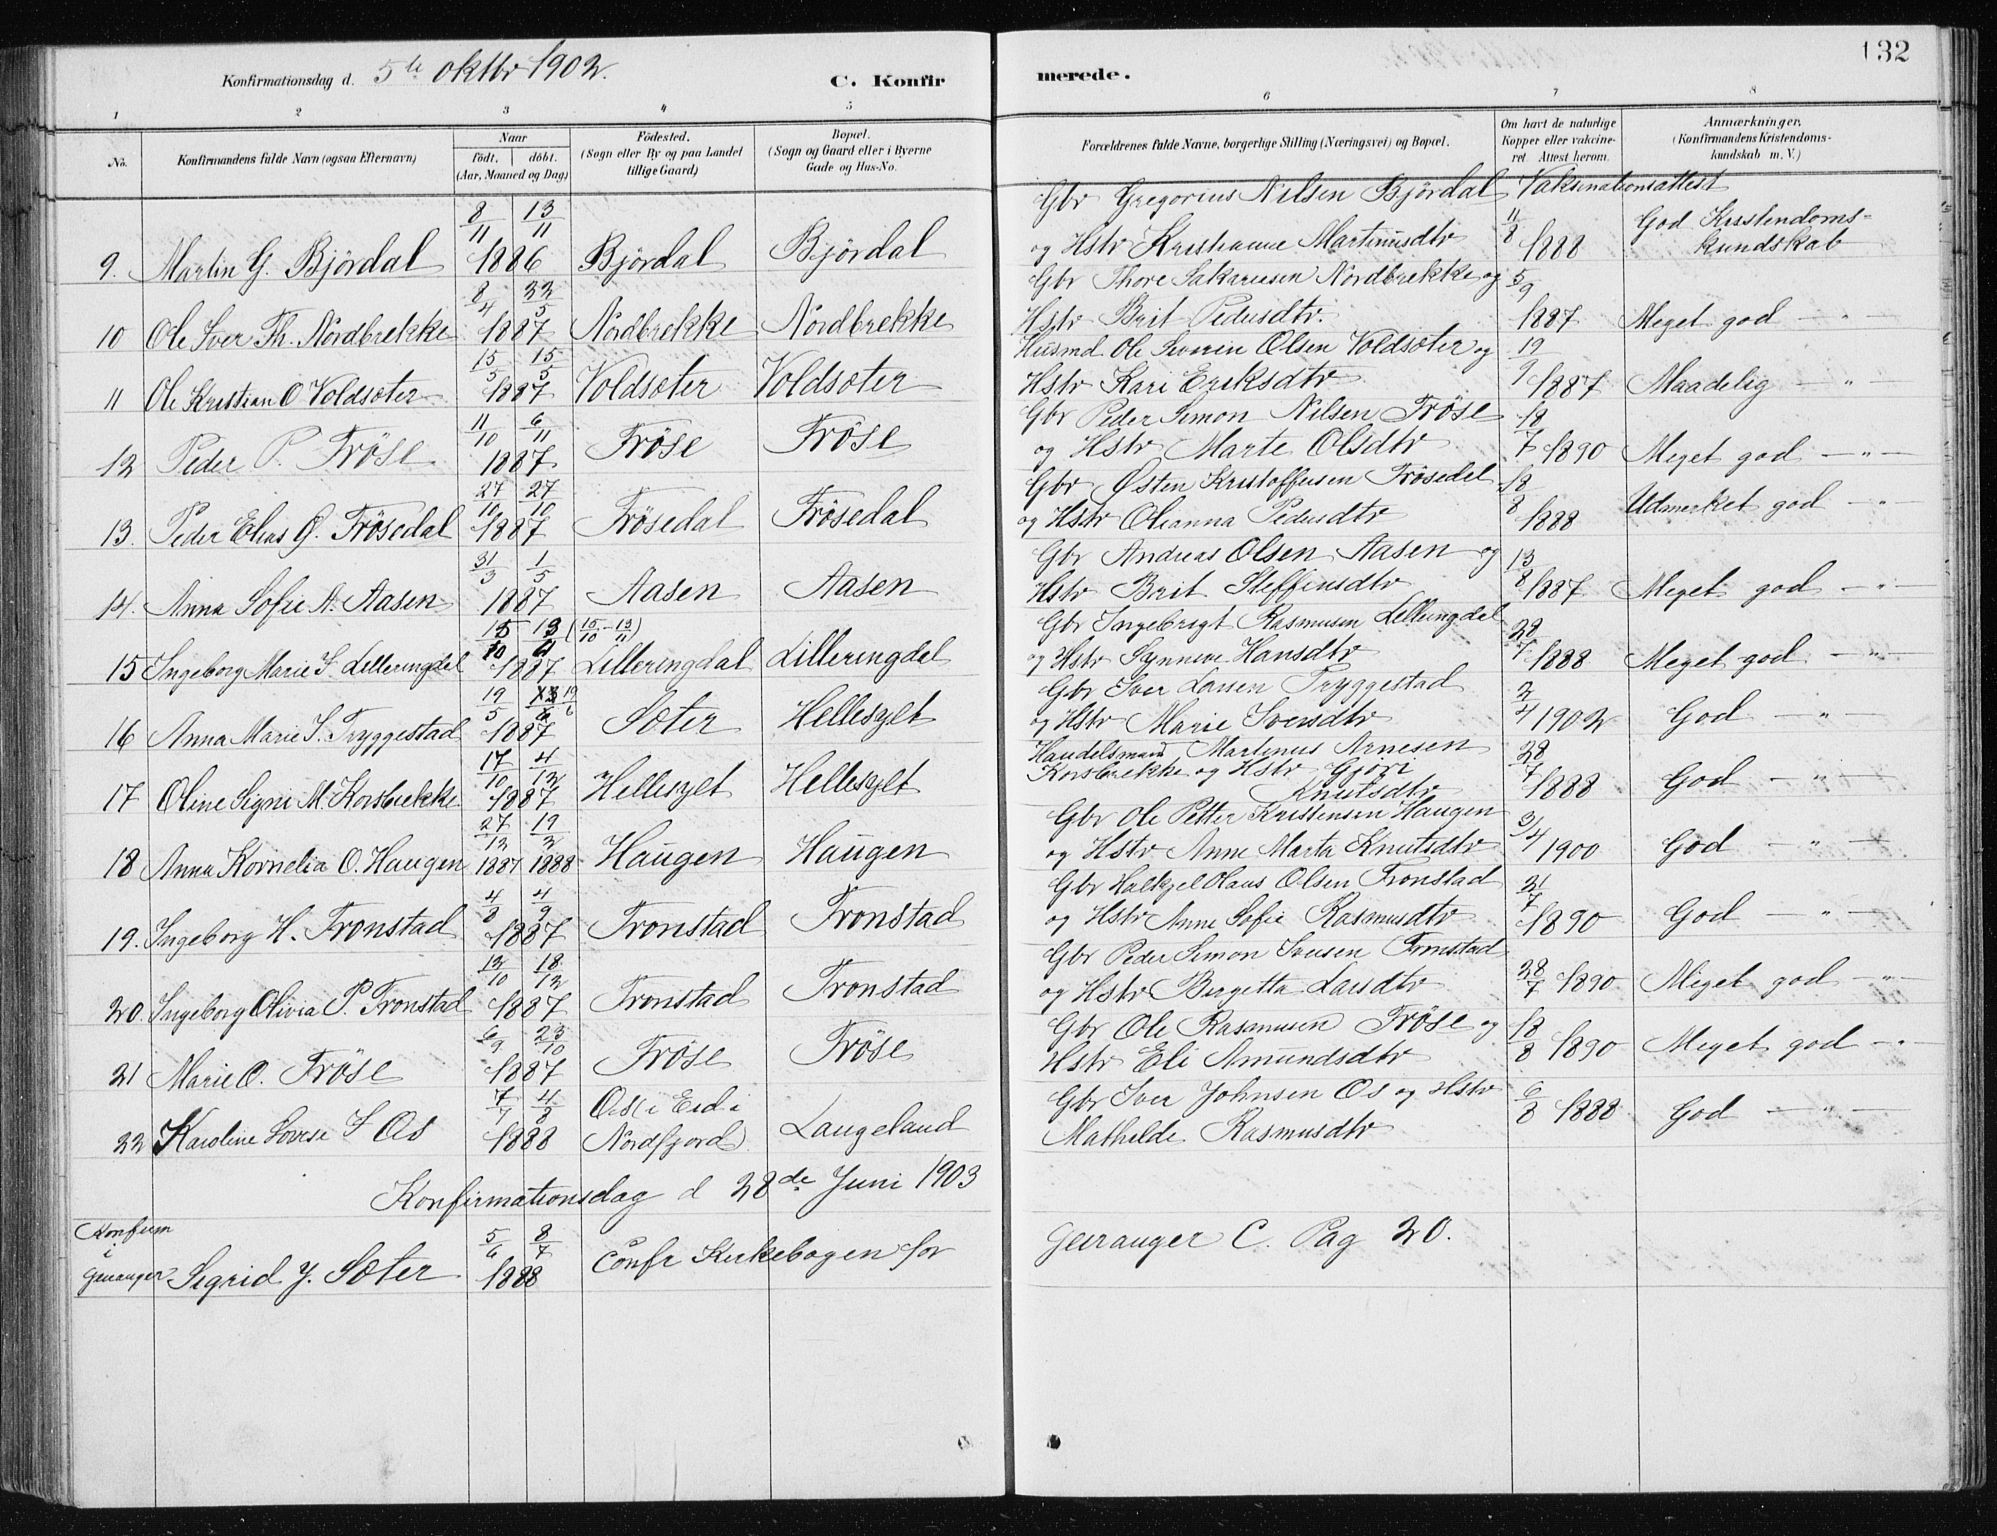 132
Konfirmationsdag d. 5te oktbr 1902.
C. Konfirmerede.
1 2 3 4 5 6 7 8
No. Konfirmandens fulde Navn (ogsaa Efternavn) Naar födt. döbt. (Aar, Maaned og Dag) Födested. (Sogn eller By og paa Landet tillige Gaard) Bopæl. (Sogn og Gaard eller i Byerne Gade og Hus-No. Forældrenes fulde Navne, borgerlige Stilling (Næringsvei) og Bopæl. Om havt de naturlige Kopper eller vakcineret Attest herom. Anmærkninger. (Konfirmandens Kristendomskundskab m. V.)
Gbr Gregorius Nilsen Björdal Vaksinationsattest
9. Martin G. Björdal 8/11 13/11 1886 Björdal Björdal og Hstr Kristianne Martinusdtr 11/8 1888 God Kristendoms-kundskab
Gbr Thore Sakariesen Nordbrekke og
10 Ole Iver Th. Nordbrekke 8/4 22/5 1887 Nordbrekke Nordbrekke Hstr Brit Pedersdtr. 5/9 1887 Meget god — " —
Husmd Ole Severin Olsen Voldsæter og
11 Ole Kristian O Voldsæter 15/5 15/5 1887 Voldsæter Voldsæter Hstr Kari Eriksdtr 19/9 1887 Maadelig — " —
Gbr Peder Simon Nilsen Fröse
12 Peder P. Fröse 11/10 6/11 1887 Fröse Fröse og Hstr Marte Olsdtr 18/7 1890 Meget god — " —
Gbr Østen Kristoffersen Frösedal
13. Peder Elias Ø. Frösedal 27/10 27/10 1887 Frösedal Frösedal og Hstr Olianna Pedersdtr 18/8 1888 Udmerket god — "
Gbr Andreas Olsen Aasen og
14. Anna Sofie A. Aasen 31/3 1/5 1887 Aasen Aasen Hstr Brit Steffensdtr 13/8 1887 Meget god — " —
Gbr Ingebrigt Rasmusen Lilleringdal
15 Ingeborg Marie I. Lilleringdal 15/10 13/11 (15/10 - 13/11) 1887 Lilleringdal Lilleringdal og Hstr Synneve Hansdtr 28/7 1888 Meget god — " —
Gbr Iver Larsen Tryggestad
16 Anna Marie I. Tryggestad 19/5 19/6 1887 Sæter Hellesylt og Hstr Marie Iversdtr 2/4 1902 God — " —
Handelsmand Martinus Arnesen
17 Oline Signe M. Korsbrekke 17/10 4/12 1887 Hellesylt Hellesylt Korsbrekke og Hstr Gjöri Knutsdtr 28/7 1888 God — " —
Gbr Ole Petter Kristensen Haugen
18 Anna Kornelia O. Haugen 27/12 1887 19/2 1888 Haugen Haugen og Hstr Anne Marta Knutsdtr 3/4 1900 God — " —
Gbr Halkjel Olaus Olsen Tronstad
19. Ingeborg H. Tronstad 4/8 4/9 1887 Tronstad Tronstad og Hstr Anne Sofie Rasmusdtr 21/7 1890 God — " —
Gbr Peder Simon Iversen Tronstad
20. Ingeborg Olivia P. Tronstad 12/10 18/12 1887 Tronstad Tronstad og Hstr Bergetta Larsdtr 28/7 1890 Meget god — " —
21 Marie O. Fröse 6/9 23/10 1887 Fröse Fröse Gbr Ole Rasmusen Fröse og Hstr Eli Amundsdtr 18/8 1890 Meget god — " —
22 Karoline Lovise I Os 7/7 4/8 1888 Os i Eid i Nordfjord Langeland Gbr Iver Johnsen Os og Hstr Mathilde Rasmusdtr 6/8 1888 God — " —
Konfirmationsdag d 28de Juni 1903
Konfirm i Geiranger Sigrid J. Sæter 5/6 8/7 1888 Confr Kirkebogen for Geiranger C. Pag 20.